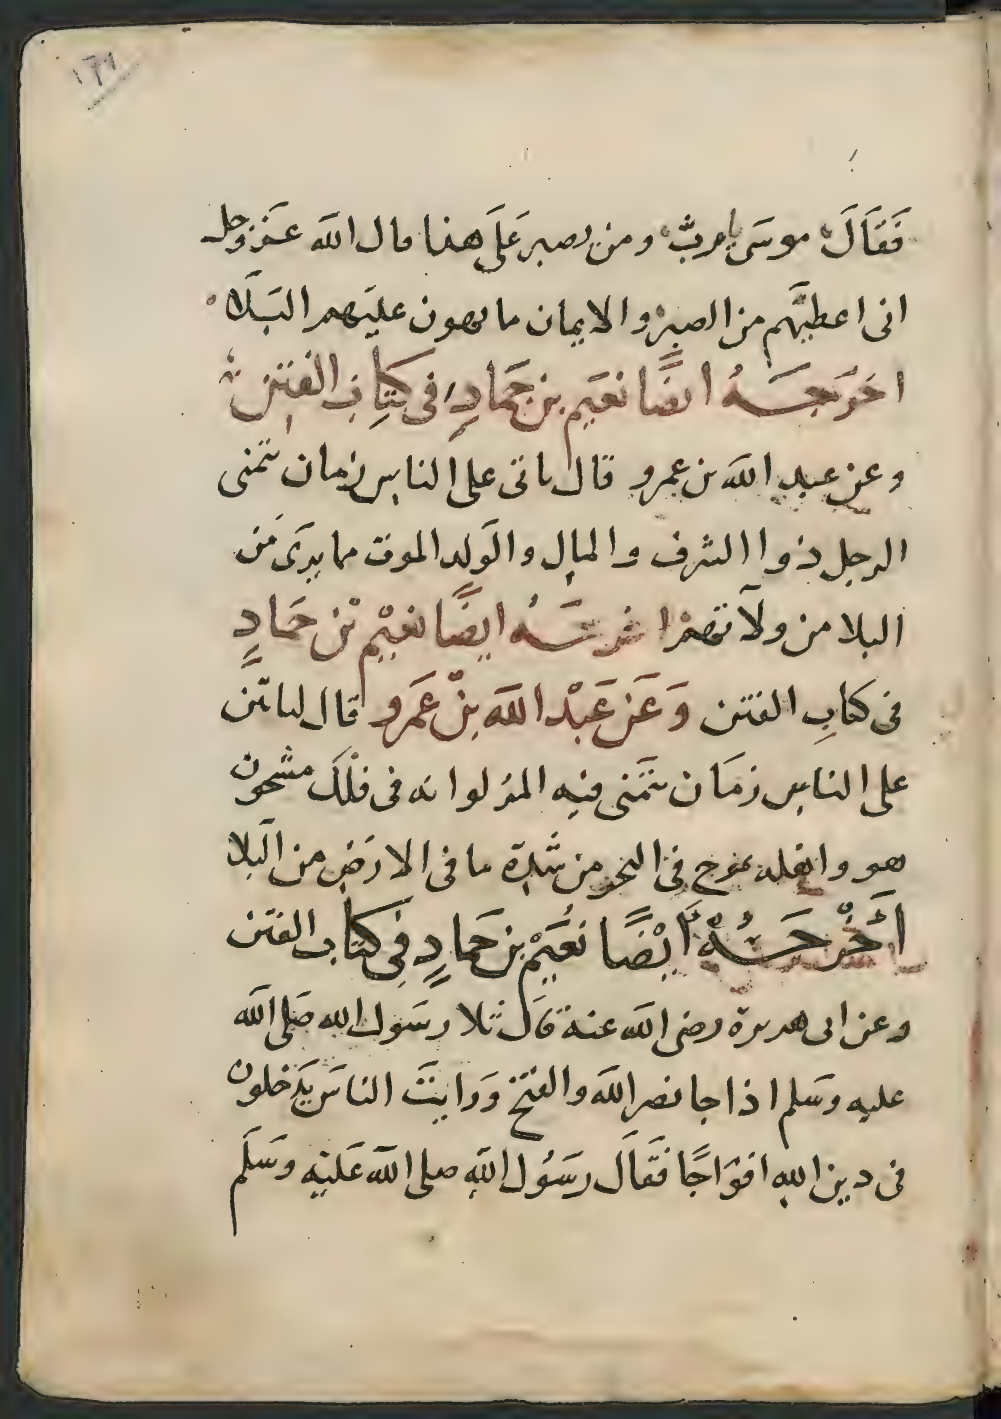 ١٦٩
فَقَالَ موسَى يا ربّ ومن يصبر عَلَى هذا قال اللّه عَزوجل
انى اعطيهم من الصبر والايمان ما يهون عليهم البَلَا
اخرَجَهُ ايضًا نعَيم بن حَمادٍ فى كتِابِ الفتِن
وعن عبد اللّه بن عمرو قال ياتى على الناس زمان يتمنى
الرجل ذوا الشرف والمال والوَلد الموت مما يرَى مَن
البلا من ولاتهم اخرجَهُ ايضًا نعَيْم بْن حَمادٍ
فى كتابِ الفتن وَعَن عَبْد اللّه بنْ عَمَرو قال لياتّين
على الناس زمَان يتمَنى فيه المرؤ لوانه فى فلْك مشحون
هو واهله يموج فى البحر من شدّة ما فى الارَضِ من البلا
أَخْرَجَهُ أَيْضًا نُعَيْم بن حَمادٍ فِى كتاب الفتن
وعن ابى هريرة رضى اللّه عنه قال تلا رسَول اللّه صَلى اللّه
عليه وسَلم اذا جا نصر اللّه والفتح وَرايتَ الناسَ يَدخلون
فى دين اللّه افوَاجًا فقَالَ رسَوُل اللّهِ صلى اللّه عَليْه وسَلَم